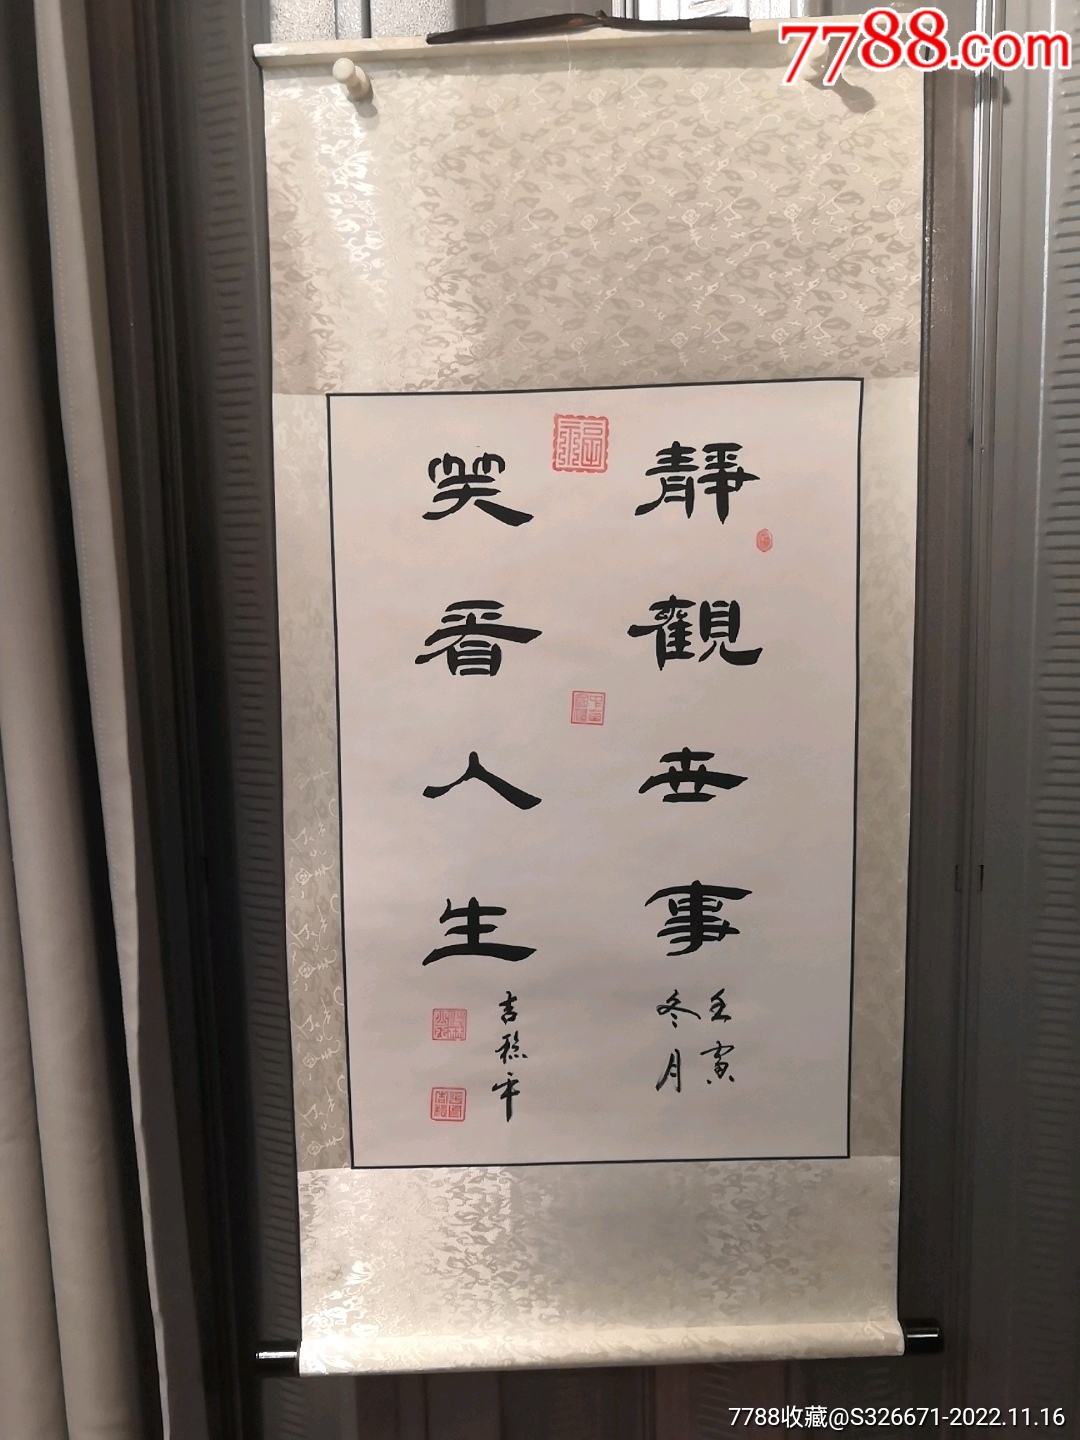 7788.com
靜觀世事
笑看人生
壬寅
冬月
吉穩平
7788收藏@S326671-2022.11.16